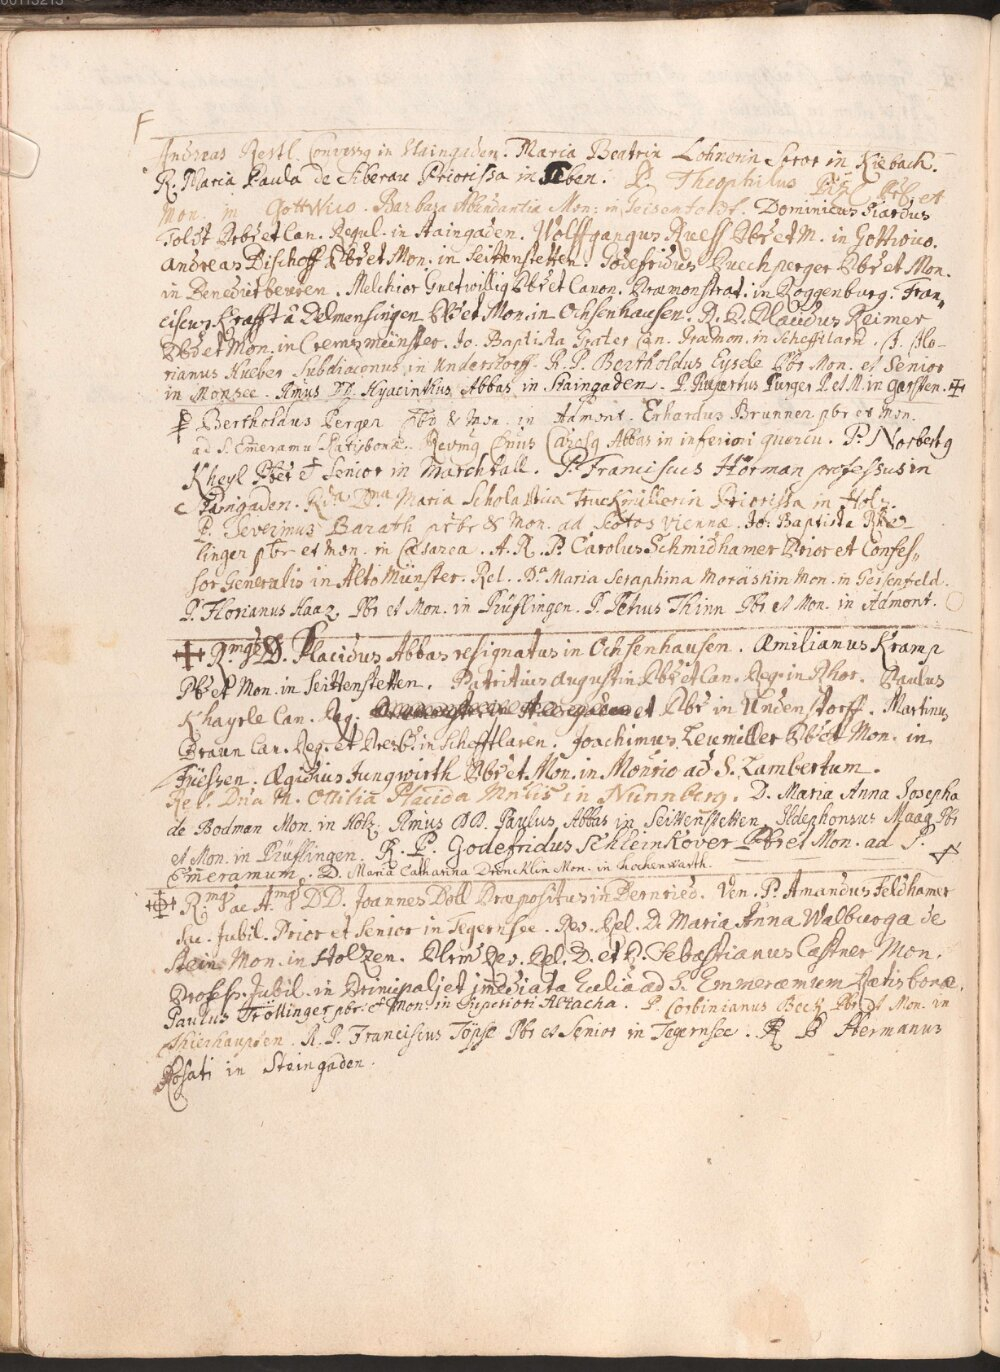 F
Andreas Restl. Convers9 in Staingaden. Maria Beatrix Lohnerin Soror in Kiebach.
R. Maria Paula de Siberau Priorissa in Seben. P. Theophilus et
Mon. in GottWico. Barbara Abundantia Mon: in Geisenfeldt. Dominicus Siardus
Toldt Pbr et Can. Regul. in Staingaden. Wolffgangus Ruess Pbr et M. in Gottwico.
Andreas Bischoff Pbr et Mon. in Seittenstetten. Godefridus Puechperger Pbr et Mon.
in Benedictbeuren. Melchior Guetwillig Pbr et Canon. Præmonstrat. in Roggenburg. Fran=
ciscus Krafft â Delmensingen Pbr et Mon. in Ochsenhausen. R. P. Placidus Reimer
Pbr et Mon. in Cremsmünster. Jo. Baptista Frater Can. Præmon. in Schefftlarn. Flo-
rianus Hueber Subdiaconus in Understorff. R. P. Bertholdus Eysele Pbr Mon. et Senior
in Monsee. Rmus DD. Hyacinthus Abbas in Staingaden. P. Rupertus Purger P. et M. in Garsten.
P Bertholdus Pergen Pbr & Mon. in Admont. Erhardus Brunner pbr et Mon.
ad S. Emeramu Ratisbonæ. Revmg Dnus Carolg Abbas in inferiori quercu. P. Norbertg
Kheyl Pbr et Senior in Marchtall. P. Franciscus Hörman professus in
c Staingaden. Rda Dna Maria Scholastica Truckmillerin Priorissa in Holz.
P. Severinus Barath pbr & Mon. ad Scotos Viennæ. Jo: Baptista
linger pbr et Mon. in Cæsarea. A. R. P. Carolus Schmidhamer Prior et Confes=
sor Generalis in Alto Münster. Rel. Da Maria Seraphina Moräshin Mon. in Geisenfeld.
P. Florianus Haaz Pbr et Mon. in Prüfflingen. P. Petrus Thinn Pbr et Mon. in Admont.
R.mg DD. Placidus Abbas resignatus in Ochsenhausen. Æmilianus Kramp
Pbr et Mon. in Seittenstetten. Patritius Augustin Pbr et Can. Reg. in Rhor. Paulus
Khayrle Can. Reg. et Pbr in Undenstorff. Martinus
Braun Can. Reg. et Presb. in Schefftlaren. Joachimus Leumiller Pbr et Mon. in
Füessen. Ægidius Jungwirth Pbr et Mon. in Monrio ad S. Lambertum.
Rel. Dna M. Ottilia Placida in Nunnberg. D. Maria Anna Josepha
de Bodman Mon. in Holz. Rmus DD. Paulus Abbas in Seittenstetten. Ildephonsus Maag Pbr
et Mon. in Prüfflingen. R. P. Godefridus Schleinkover Pbr et Mon. ad S.
Emeramum. D. Maria Catharina Dröncklin Mon. in Hochenwarth.
R.mg ac A.mg DD. Joannes Doll Præpositus in Bernried. Ven. P. Amandus Feldhamer
Sac. Jubil. Prior et Senior in Tegernsee. Rev. Rel. D. Maria Anna Walburga de
Stein Mon. in Holzen. Plrm Rev. Rel. D. et P. Sebastianus Castner Mon.
Profess. Jubil. in Principali et imediata Eccliâ ad S. Emmeramum Ratisbonæ.
Paulus Tröllinger pbr. et Mon. in Superiori Altacha. P. Corbinianus Beck Pbr et Mon. in
Thierhaupten. R. P. Franciscus Töpsl Pbr et Senior in Tegernsee. R P Hermanus
Rosati in Steingaden.